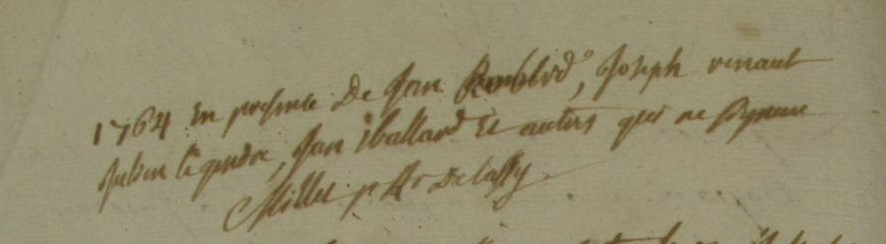 1764 en presence De Jan Roublrd, Joseph renault
Julien le gendre, Jan Ballard Et autres qui ne signent
Millet p